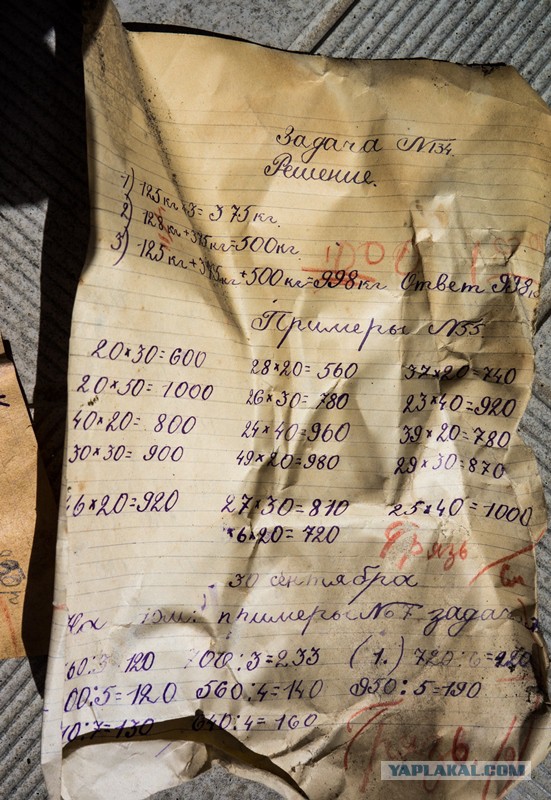 Задача №134.
Решение.
1) 125 кг × 3 = 375 кг.
2) 128 кг + 375 кг = 500 кг.
3) 125 кг + 375 кг + 500 кг = 998 кг Ответ 938
Примеры №55
20×30=600 28×20=560 37×20=740
20×50=1000 26×30=780 23×40=920
40×20=800 24×40=960 39×20=780
30×30=900 49×20=980 29×30=870
46×20=920 27×30=810 25×40=1000
×6×20=720
Грязь
30 сентября
примеры №7 задача
60:3=120 700:3=233 (1.) 720:6=120
00:5=120 560:4=140 950:5=190
10:7=130 640:4=160
Грязь
YAPLAKAL.COM